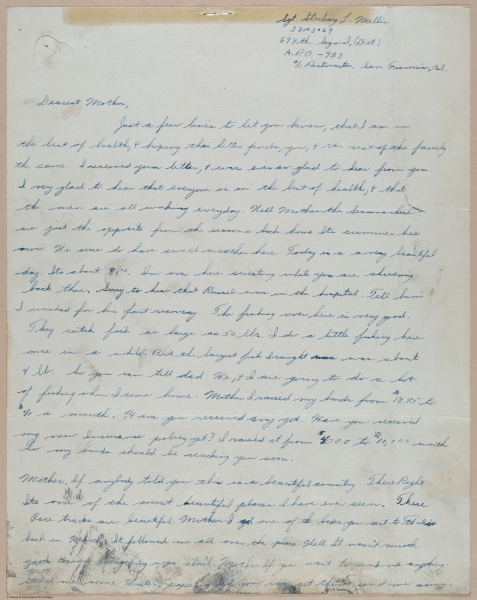 Sgt. Sterling L. Mellis
694th Signal, (Det)
A.P.O. - 923
c/o Postmaster, San Francisco, Cal.
Dearest Mother,
Just a few lines to let you know, that I am in
the best of health, & hoping this letter finds you, & the rest of the family
the same. I received your letter, & was ever so glad to hear from you.
I very glad to hear that everyone is in the best of health, & that
the men are all working everyday. Well Mother the seasons here
are just the opposite from the seasons back home. Its summer here
now. We sure do have swell weather here. Today is a very beautiful
day. Its about 85°. Im over here sweating while you are shivering
back there. Sorry to hear that Russel was in the hospital. Tell him
I wished for his fast recovery. The fishing over here is very good.
They catch fish as large as 50 lbs. I do a little fishing here
once in a while. But the largest fish I caught was about
4 lb. So you can tell dad. He, & I are going to do a lot
of fishing when I come home. Mother I raised my bonds from $18.75 to
a month. Have you received any yet. Have you received
my new Insurance policy yet? I raised it from to $10,000 worth
So my bonds should be reaching you soon.
Mother, If anybody told you this is a beautiful country. There Right.
Its one of the most beautiful places I have ever seen. There
Race tracks are beautiful. Mother I got one of the boxes you sent to
back in It followed me all over the place. Well It wasn't much
good Mother If you want to send me anything
send me some